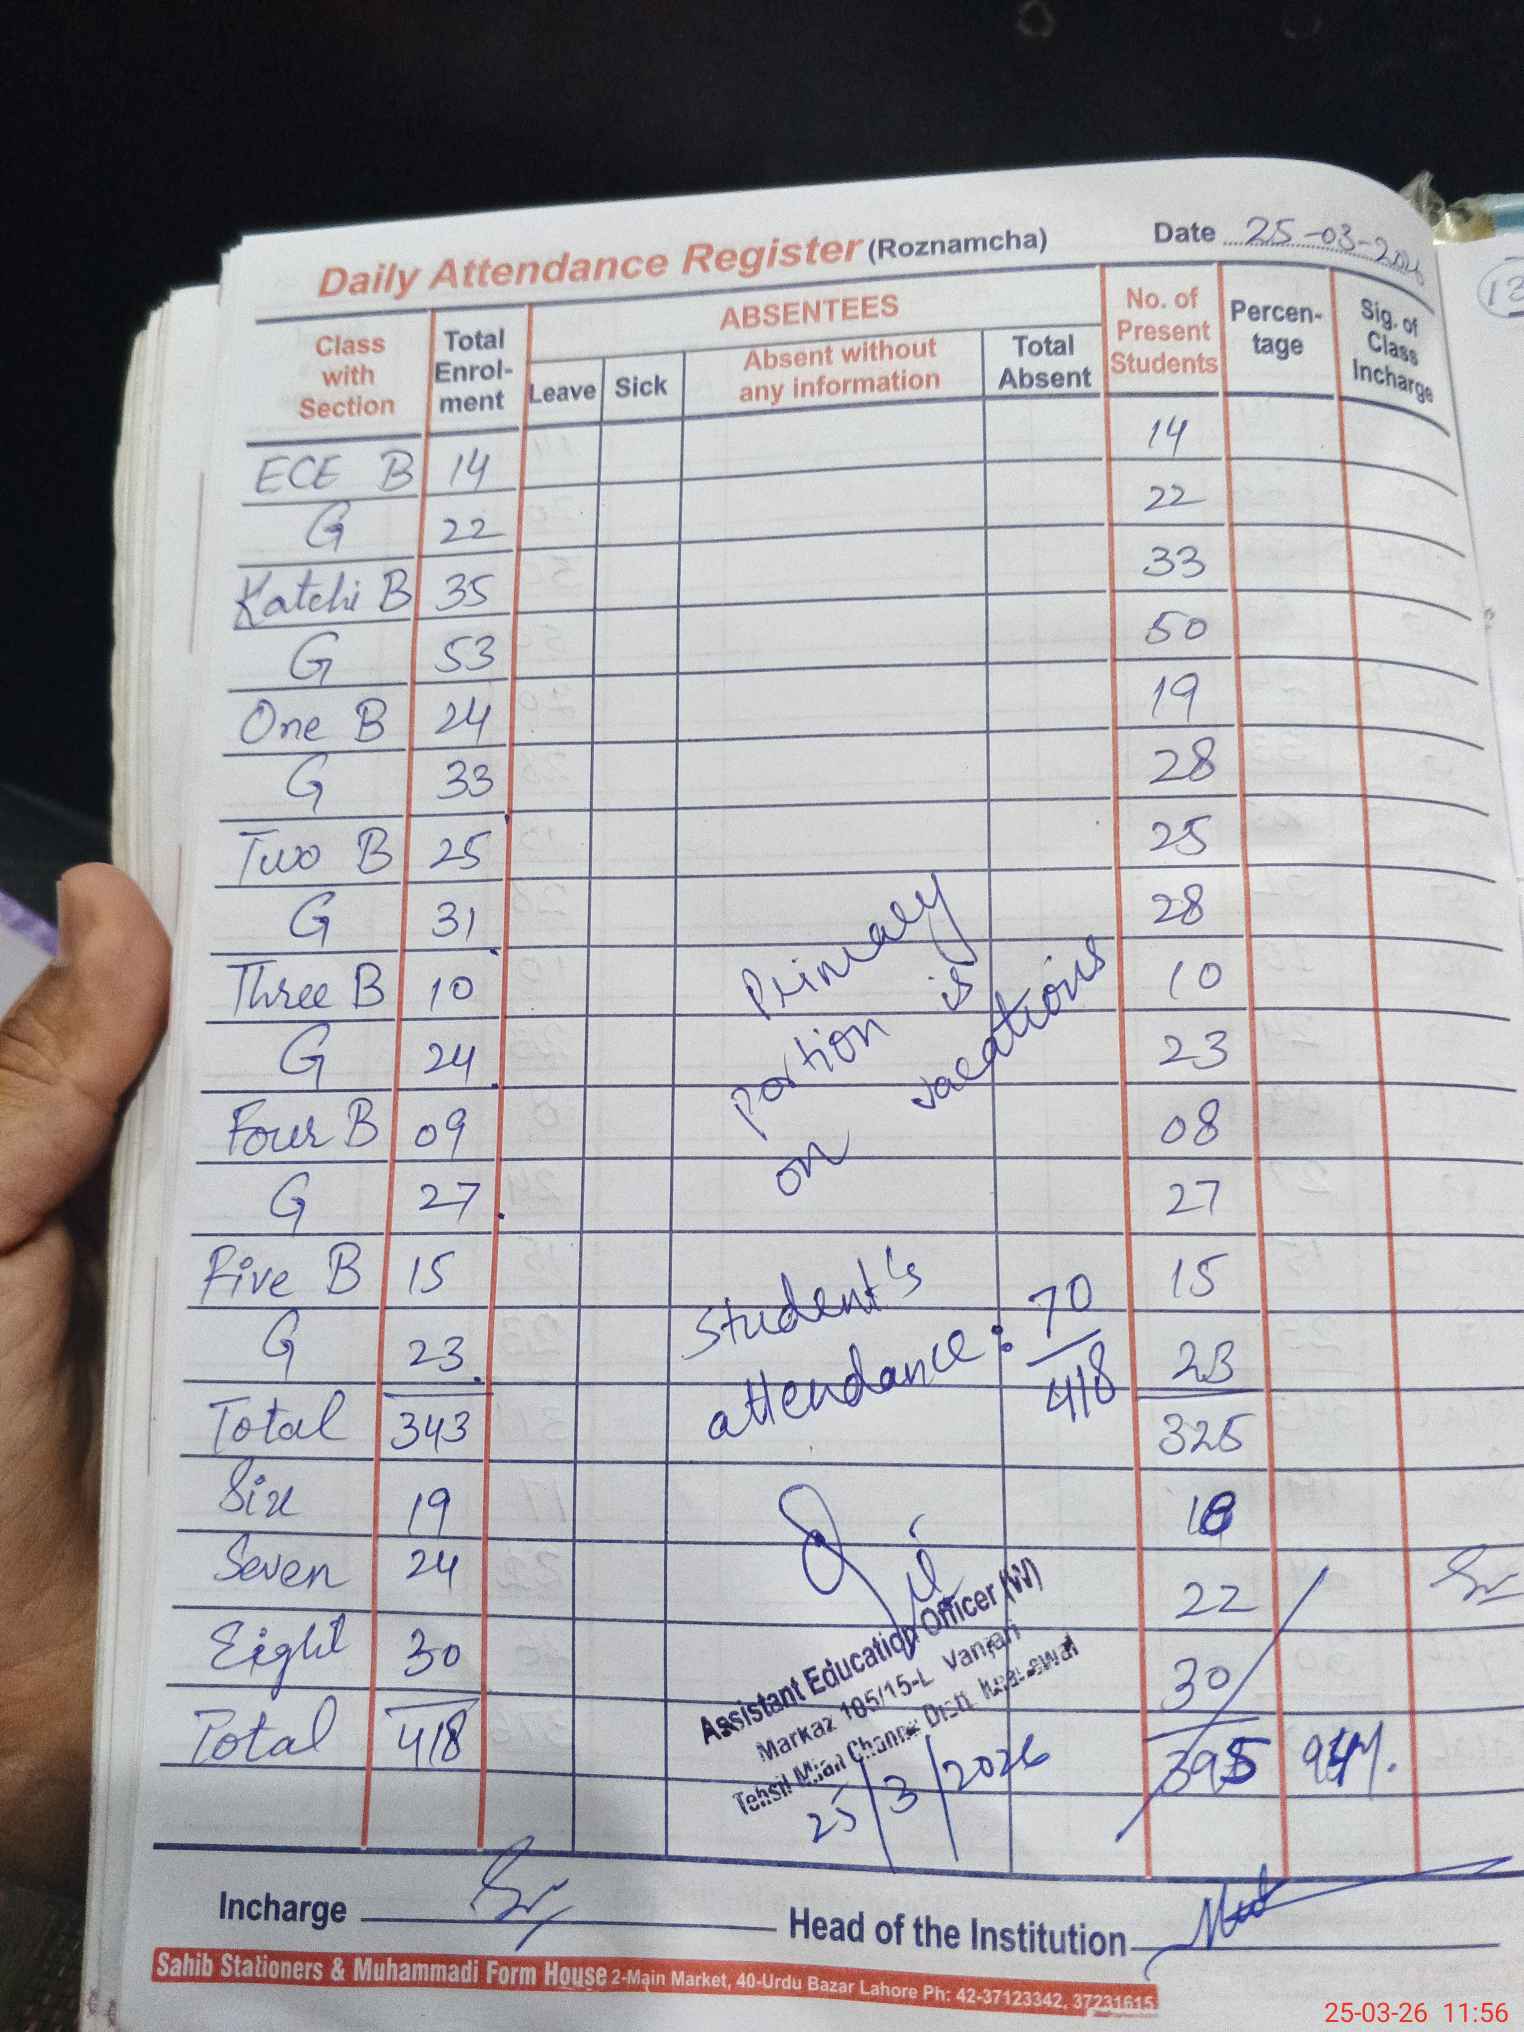 Daily Attendance Register (Roznamcha) Date 25-03-2026
Class with Section Total Enrol-ment ABSENTEES No. of Present Students Percen-tage Sig. of Class Incharge
Leave Sick Absent without any information Total Absent
ECE B 14 14
G 22 22
Katchi B 35 33
G 53 50
One B 24 19
G 33 28
Two B 25 25
G 31 28
Three B 10 10
G 24 23
Four B 09 08
G 27 27
Five B 15 15
G 23 23
Total 343 325
Six 19 18
Seven 24 22
Eight 30 30
Total 418 395 94%.
Primary
portion is
on vacations
Student's
attendance: 70/418
Assistant Education Officer (W)
Markaz 105/15-L
Tehsil Mian Channu Distt.
25/3/2026
Incharge Head of the Institution
Sahib Stationers & Muhammadi Form House 2-Main Market, 40-Urdu Bazar Lahore Ph: 42-37123342, 37231615
25-03-26 11:56